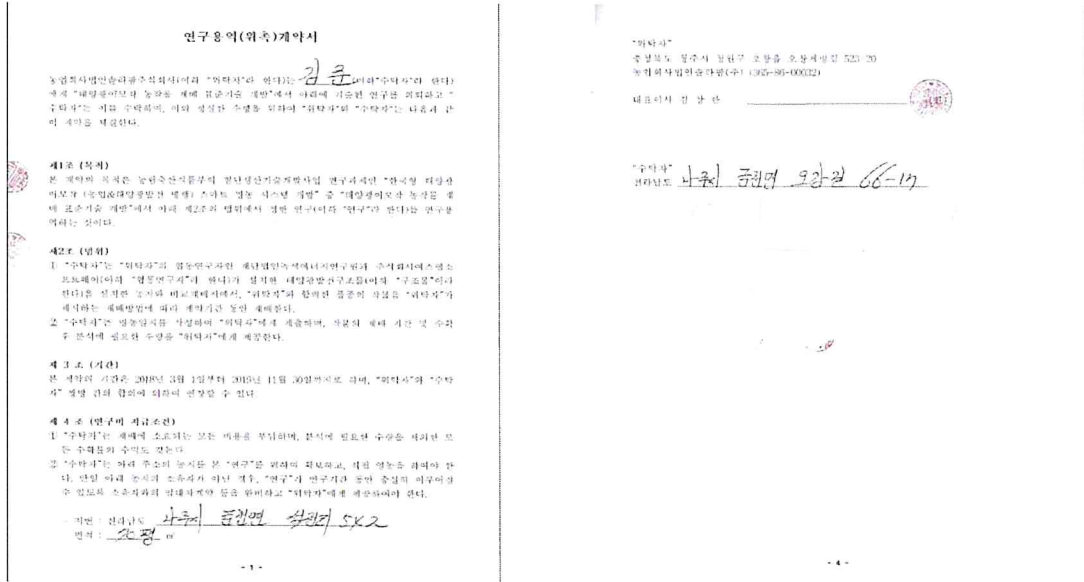 연구용역(위촉)계약서
농업회사법인솔라팜주식회사(이하 "위탁자"라 한다)는 김준 (이하"수탁자"라 한다)
에게 "태양광이모작 농작물 재배 표준기술 개발"에서 아래에 기술된 연구를 의뢰하고 "
수탁자"는 이를 수락하며, 이의 성실한 수행을 위하여 "위탁자"와 "수탁자"는 다음과 같
이 계약을 체결한다.
제1조 (목적)
본 계약의 목적은 농림축산식품부의 첨단생산기술개발사업 연구과제인 "한국형 태양광
이모작 (농업&태양광발전 병행) 스마트 영농 시스템 개발" 중 "태양광이모작 농작물 재
배 표준기술 개발"에서 아래 제2조의 범위에서 정한 연구(이하 "연구"라 한다)를 연구용
역하는 것이다.
제2조 (범위)
① "수탁자"는 "위탁자"의 협동연구자인 재단법인녹색에너지연구원과 주식회사에스엠소
프트웨어(이하 "협동연구자"라 한다)가 설치한 태양광발전구조물(이하 "구조물"이라
한다)을 설치한 농지와 비교재배지에서, "위탁자"와 합의한 품종의 작물을 "위탁자"가
제시하는 재배방법에 따라 계약기간 동안 재배한다.
② "수탁자"는 영농일지를 작성하여 "위탁자"에게 제출하며, 작물의 재배 기간 및 수확
후 분석에 필요한 수량을 "위탁자"에게 제공한다.
제 3 조 (기간)
본 계약의 기간은 2018년 3월 1일부터 2019년 11월 30일까지로 하며, "위탁자"와 "수탁
자" 쌍방 간의 합의에 의하여 연장할 수 있다.
제 4 조 (연구비 지급조건)
① "수탁자"는 재배에 소요되는 모든 비용을 부담하며, 분석에 필요한 수량을 제외한 모
든 수확물의 수익도 갖는다.
② "수탁자"는 아래 주소의 농지를 본 "연구"를 위하여 확보하고, 직접 영농을 하여야 한
다. 만일 아래 농지의 소유자가 아닌 경우, "연구"가 연구기간 동안 충실히 이루어질
수 있도록 소유자와의 임대차계약 등을 완비하고 "위탁자"에게 제공하여야 한다.
- 지번 : 전라남도 나주시
면적 : 평 ㎡
- 1 -
"위탁자"
충청북도 청주시 청원구 오창읍 523-20
농업회사법인솔라팜(주) (365-86-00632)
대표이사 김 상
"수탁자"
전라남도 나주시 66-17
- 4 -